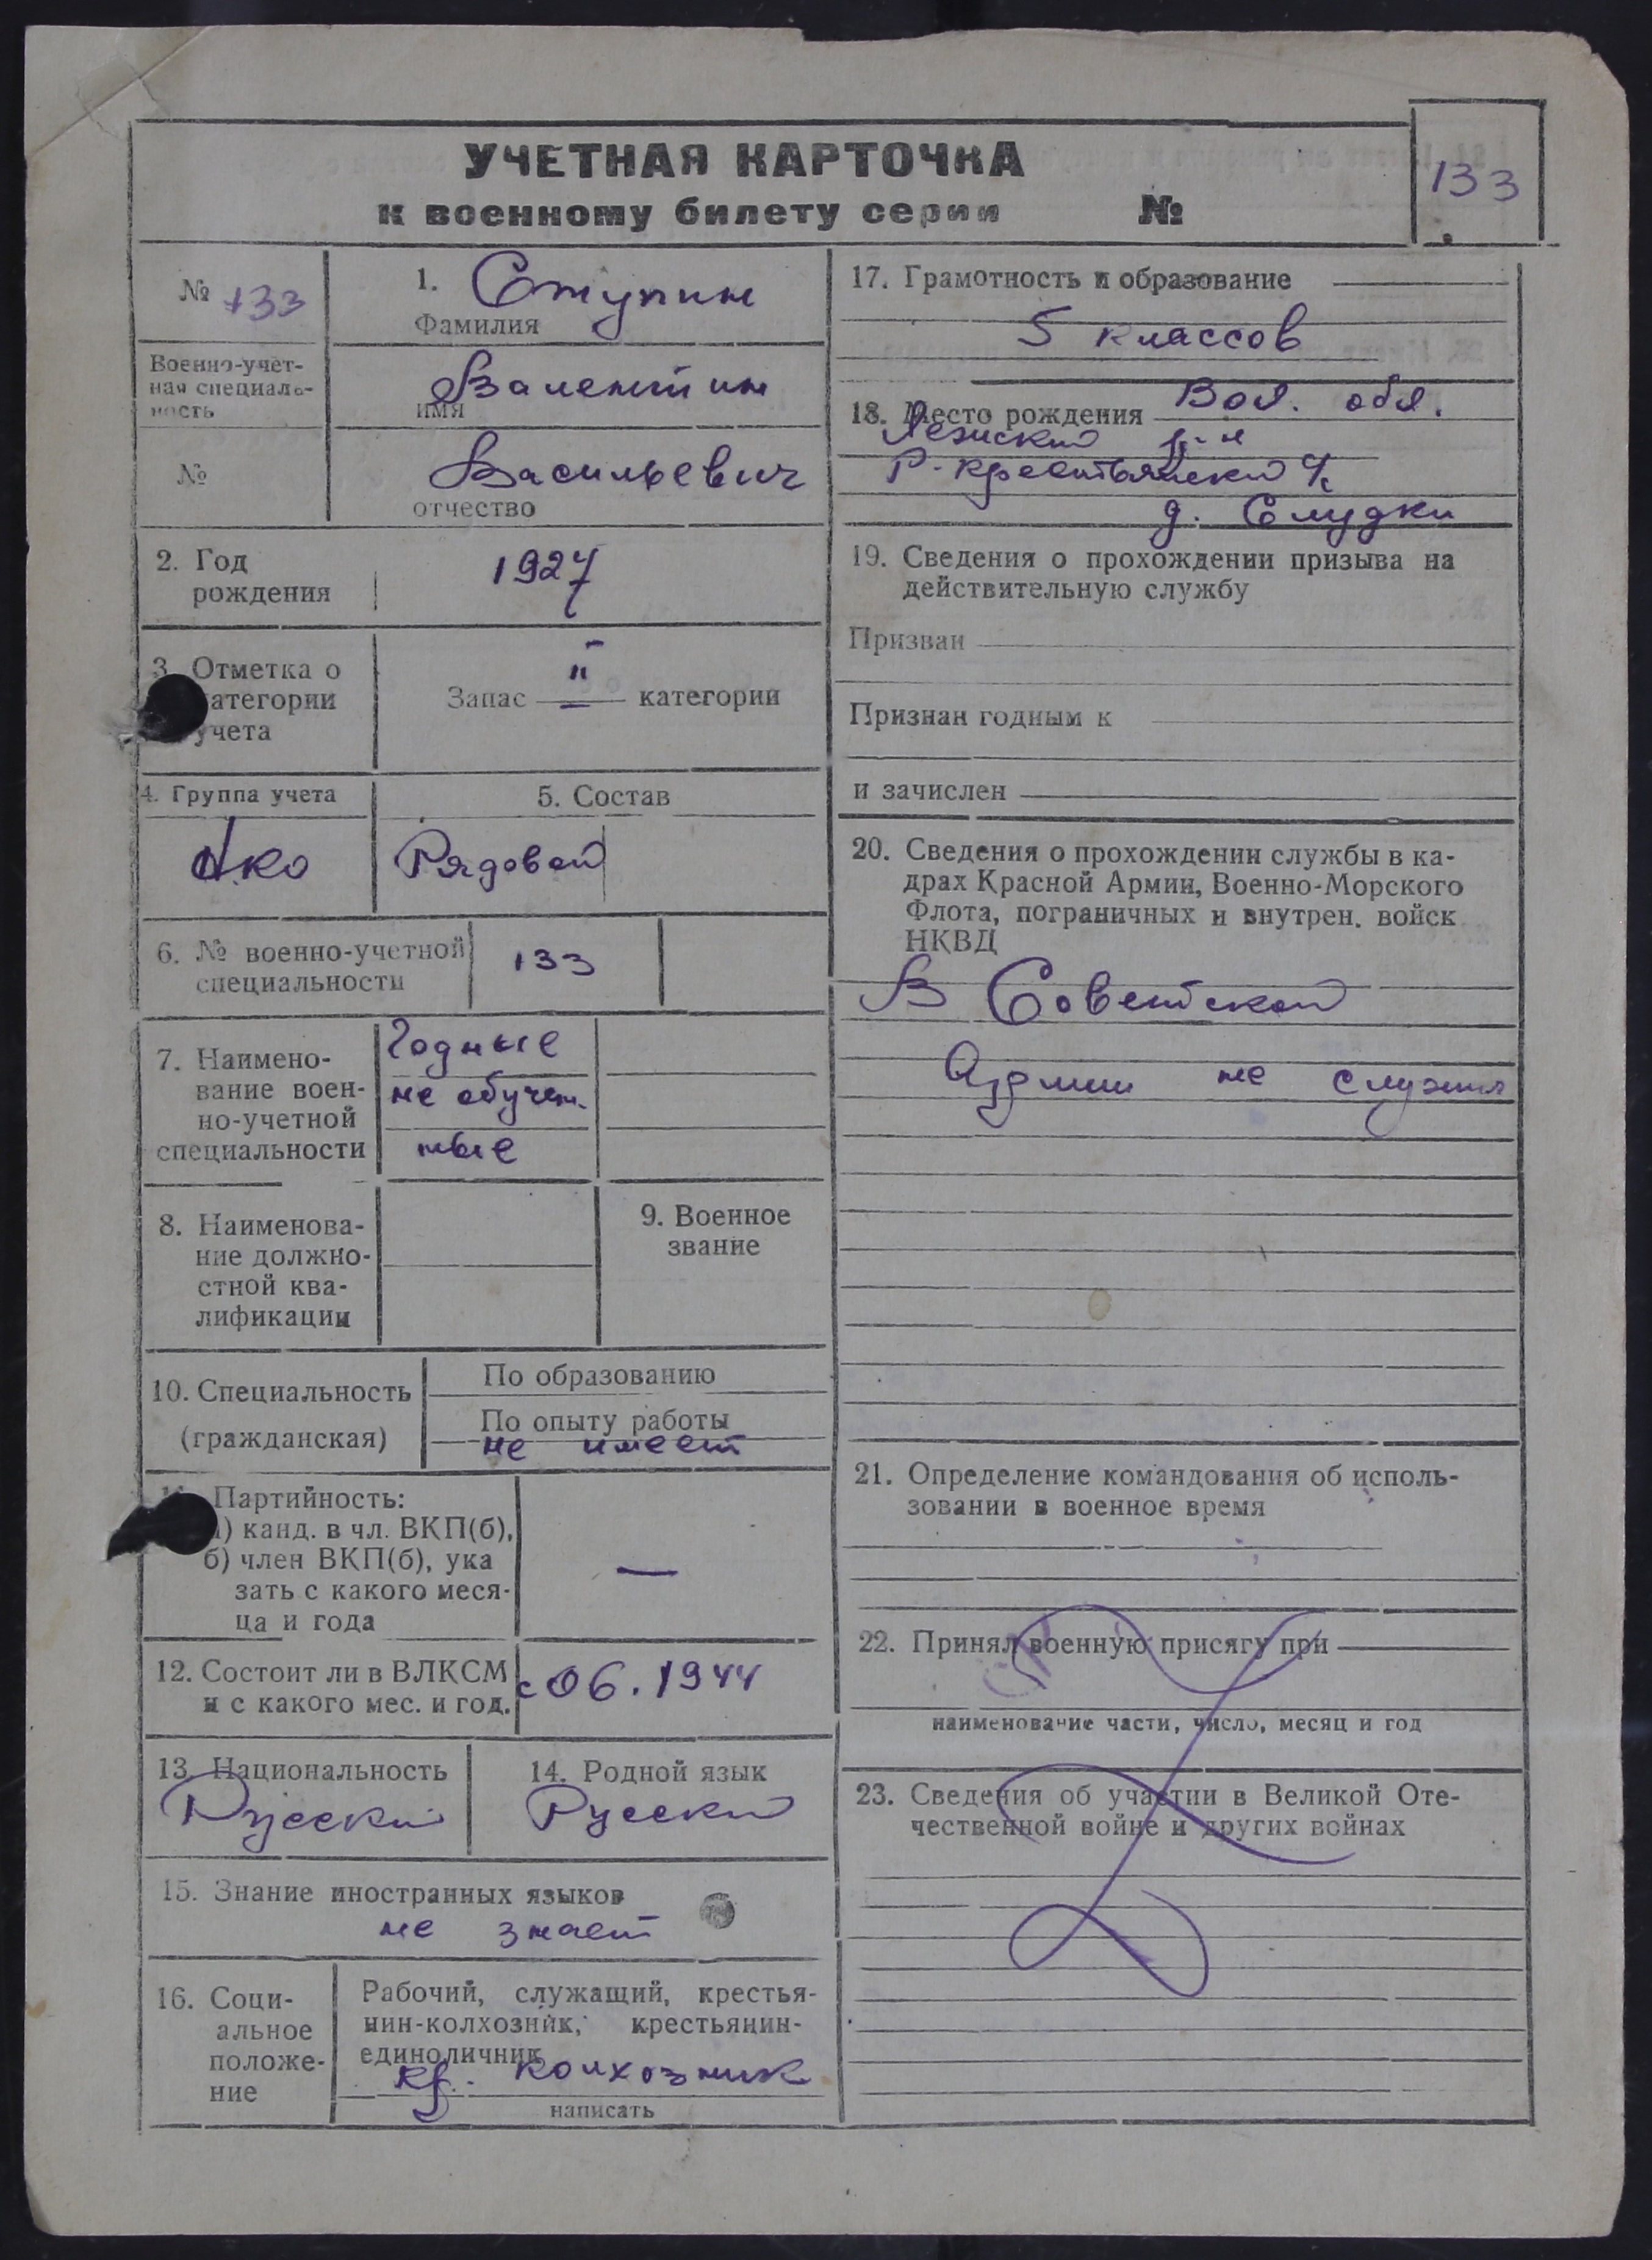 УЧЕТНАЯ КАРТОЧКА
к военному билету серии №
133
№ 133
1. Ступин
Фамилия
Военно-учет-
ная специаль-
ность
Валентин
имя
№
Васильевич
отчество
2. Год
рождения
1927
3. Отметка о
категории
учета
Запас II категории
4. Группа учета
5. Состав
Рядовой
6. № военно-учетной
специальности
133
7. Наимено-
вание воен-
но-учетной
специальности
Годные
не обучен-
ные
8. Наименова-
ние должно-
стной ква-
лификации
9. Военное
звание
10. Специальность
(гражданская)
По образованию
По опыту работы
не имеет
Партийность:
а) канд. в чл. ВКП(б),
б) член ВКП(б), ука
зать с какого меся-
ца и года
—
12. Состоит ли в ВЛКСМ
и с какого мес. и год.
с 06.1944
13. Национальность
Русский
14. Родной язык
Русский
15. Знание иностранных языков
не знает
16. Соци-
альное
положе-
ние
Рабочий, служащий, крестья-
нин-колхозник, крестьянин-
единоличник
кр. колхозник
написать
17. Грамотность и образование
5 классов
18. Место рождения Вол. обл.
Лежский р-н
Р-Крестьянский с/с
д. Слудки
19. Сведения о прохождении призыва на
действительную службу
Призван
Признан годным к
и зачислен
20. Сведения о прохождении службы в ка-
драх Красной Армии, Военно-Морского
Флота, пограничных и внутрен. войск
НКВД
В Советской
Армии не служил
21. Определение командования об исполь-
зовании в военное время
22. Принял военную присягу при
наименование части, число, месяц и год
23. Сведения об участии в Великой Оте-
чественной войне и других войнах